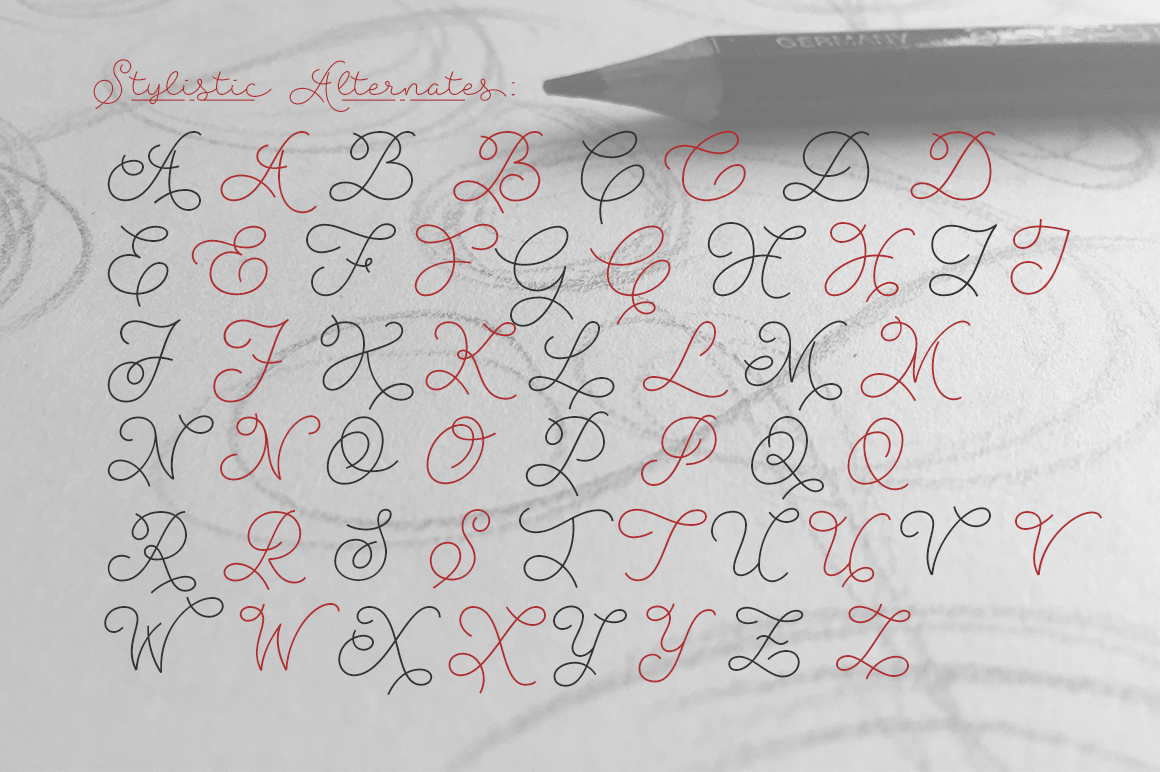 GERMANY
Stylistic Alternates:
A A B B C C D D
E E F F G G H H I I
J J K K L L M M
N N O O P P Q Q
R R S S T T U U V V
W W X X Y Y Z Z